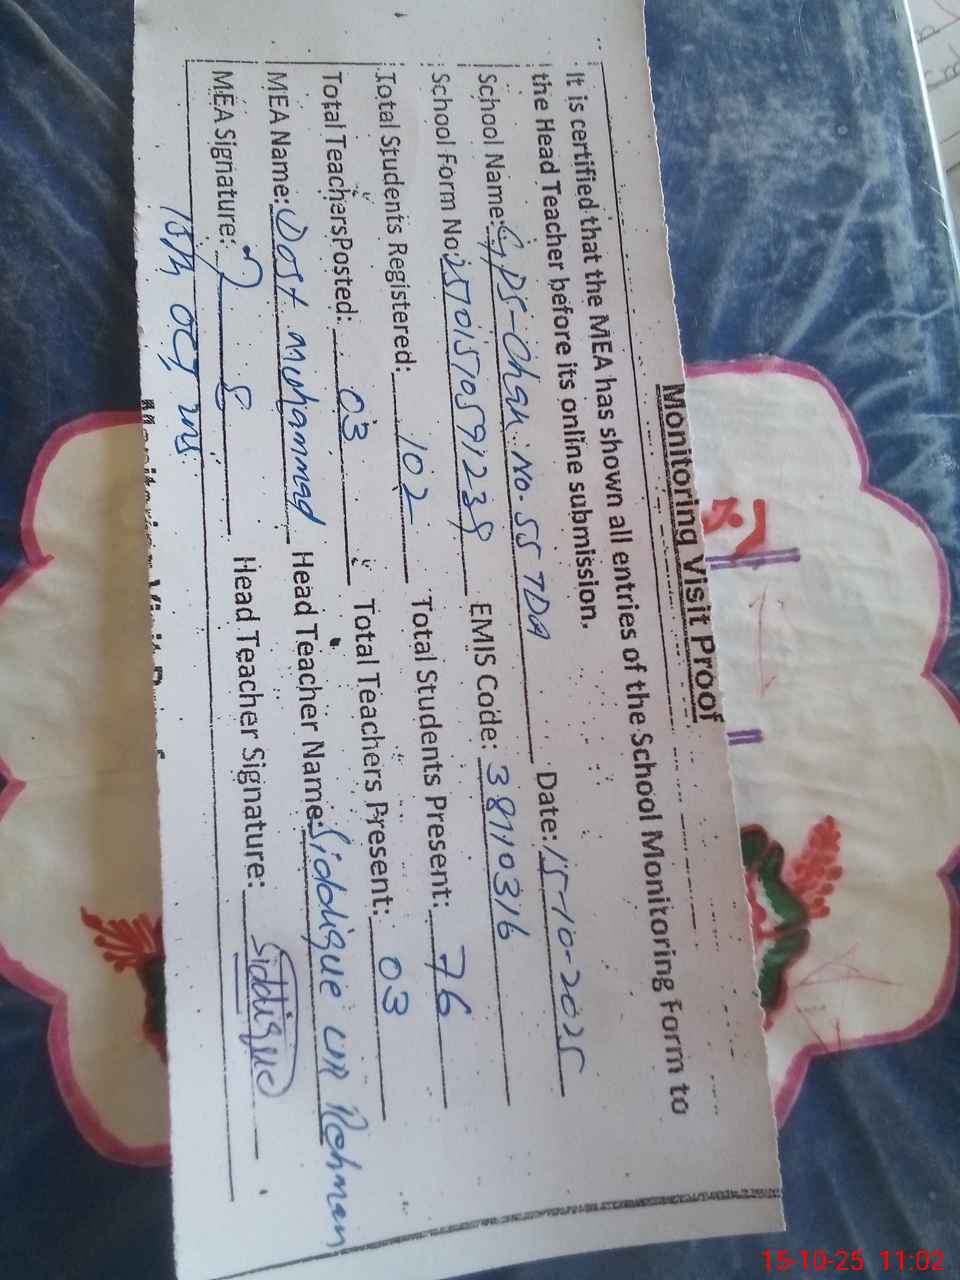 Monitoring Visit Proof
It is certified that the MEA has shown all entries of the School Monitoring Form to
the Head Teacher before its online submission.
School Name: GPS-Chak No. 55 TDA Date: 15-10-2025
School Form No: 25701510591238 EMIS Code: 38110316
Total Students Registered: 102 Total Students Present: 76
Total Teachers Posted: 03 Total Teachers Present: 03
MEA Name: Dost Muhammad Head Teacher Name: Siddique ur Rehman
MEA Signature: Head Teacher Signature: Siddique
15th Oct
15-10-25 11:02